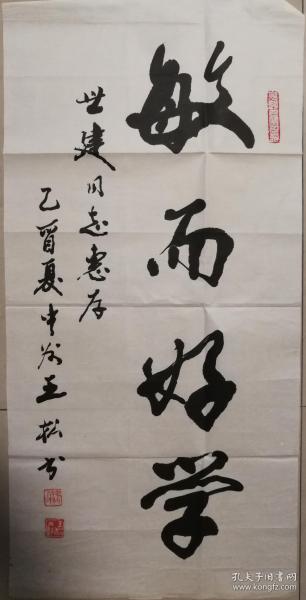 敏而好学
世建同志惠存
乙酉夏 王松书
孔夫子旧书网